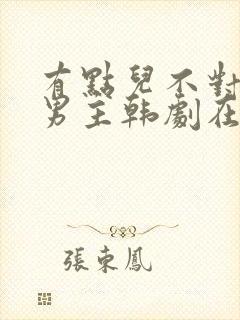 有點兒不對
男主韩劇在
張東鳳